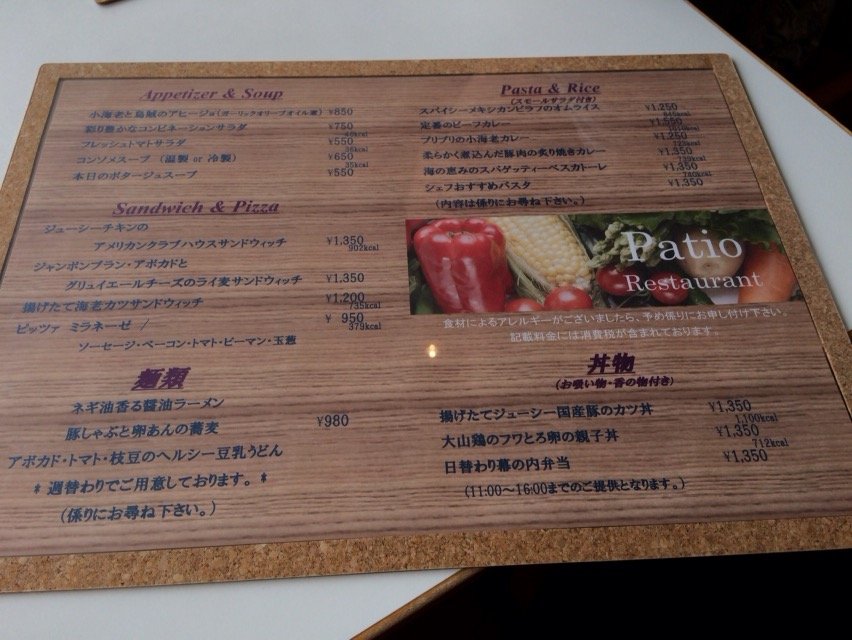 Appetizer & Soup
小海老と烏賊のアヒージョ(ガーリックオリーブオイル煮) ¥850
彩り豊かなコンビネーションサラダ ¥750
フレッシュトマトサラダ ¥550
コンソメスープ (温製 or 冷製) ¥650
35kcal
本日のポタージュスープ ¥550
Sandwich & Pizza
ジューシーチキンの
アメリカンクラブハウスサンドウィッチ ¥1,350
902kcal
ジャンボンブラン・アボカドと
グリュイエールチーズのライ麦サンドウィッチ ¥1,350
揚げたて海老カツサンドウィッチ ¥1,200
735kcal
ピッツァ ミラネーゼ / ¥ 950
379kcal
ソーセージ・ベーコン・トマト・ピーマン・玉葱
麺類
ネギ油香る醤油ラーメン
豚しゃぶと卵あんの蕎麦 ¥980
アボカド・トマト・枝豆のヘルシー豆乳うどん
* 週替わりでご用意しております。 *
(係りにお尋ね下さい。)
Pasta & Rice
(スモールサラダ付き)
スパイシーメキシカンピラフのオムライス ¥1,250
定番のビーフカレー ¥1,550
プリプリの小海老カレー ¥1,250
柔らかく煮込んだ豚肉の炙り焼きカレー ¥1,350
海の恵みのスパゲッティーペスカトーレ ¥1,350
シェフおすすめパスタ ¥1,350
(内容は係りにお尋ね下さい。)
Patio
Restaurant
食材によるアレルギーがございましたら、予め係りにお申し付け下さい。
記載料金には消費税が含まれております。
丼物
(お吸い物・香の物付き)
揚げたてジューシー国産豚のカツ丼 ¥1,350
1,100kcal
大山鶏のフワとろ卵の親子丼 ¥1,350
712kcal
日替わり幕の内弁当 ¥1,350
(11:00～16:00までのご提供となります。)